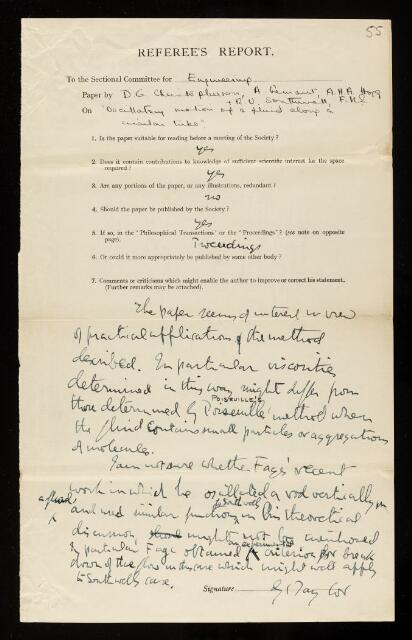 55
REFEREE'S REPORT.
To the Sectional Committee for Engineering
Paper by D. G. Christopherson, A. Gemant, A. H. A. Hogg
+ R. V. Southwell, F.R.S.
On "Oscillatory motion of a fluid along a
circular tube"
1. Is the paper suitable for reading before a meeting of the Society?
yes
2. Does it contain contributions to knowledge of sufficient scientific interest for the space
required?
yes
3. Are any portions of the paper, or any illustrations, redundant?
no
4. Should the paper be published by the Society?
yes
5. If so, in the 'Philosophical Transactions' or the 'Proceedings'? (see note on opposite
page).
Proceedings
6. Or could it more appropriately be published by some other body?
7. Comments or criticisms which might enable the author to improve or correct his statement.
(Further remarks may be attached).
The paper seems of interest in view
of practical applications of the method
described. In particular viscosities
determined in this way might differ from
POISEUILLE'S
those determined by Poiseuille's method when
the fluid contains small particles or aggregations
of molecules.
I am not sure whether Fage's recent
work in which he oscillated a rod vertically in
a fluid
Southwell's
and used similar functions in his theoretical
discussion might not be mentioned
an experimental
In particular Fage obtained criterion for break
down of the flow in this case which might well apply
to Southwell's case.
Signature G I Taylor